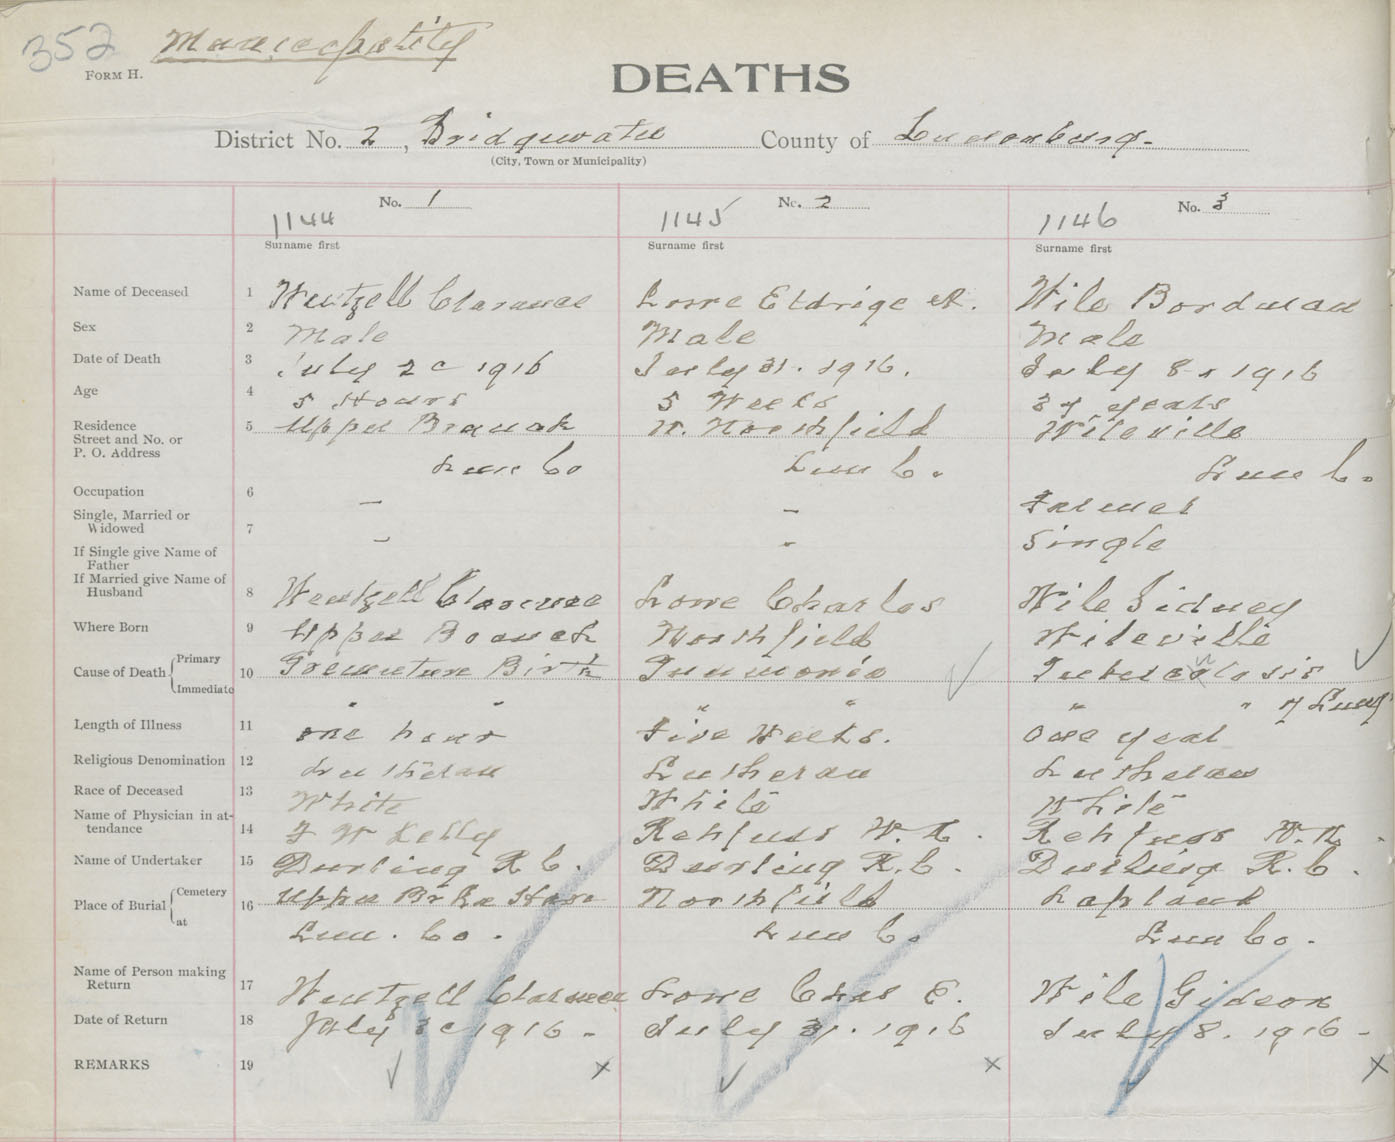 352 Municipality
FORM H.
DEATHS
District No. 2, Bridgewater County of Lunenburg.
(City, Town or Municipality)
No. 1 No. 2 No. 3
1144 1145 1146
Surname first Surname first Surname first
Name of Deceased 1 Wentzell Clarence Lowe Eldrige A. Wile Bordman
Sex 2 Male Male Male
Date of Death 3 July 1916 July 31. 1916. July 8 1916
Age 4 5 Hours 5 Weeks years
Residence 5 Upper Branch W. Northfield Wileville
Street and No. or
P. O. Address Lun Co Lun C. Lun C.
Occupation 6 — – Farmer
Single, Married or
Widowed 7 – – Single
If Single give Name of
Father
If Married give Name of
Husband 8 Wentzell Clarence Lowe Charles Wile Sidney
Where Born 9 Upper Branch Northfield Wileville
Cause of Death Primary 10 Premature Birth Pnumonia Tuberculosis
Immediate " " " " " " of Lung
Length of Illness 11 one hour Five Weeks. One year
Religious Denomination 12 Lutheran Lutheran Lutheran
Race of Deceased 13 White White White
Name of Physician in at-
tendance 14 F W Kelly Rehfuss W. N. Rehfuss W. N.
Name of Undertaker 15 Durling R C. Durling R. C. Durling R. C.
Place of Burial Cemetery 16 Upper Northfield Lapland
at Lun. Co. Lun C. Lun Co.
Name of Person making
Return 17 Wentzell Clarence Lowe Chas E. Wile Gideon
Date of Return 18 July 1916 - July 31. 1916 July 8. 1916 -
REMARKS 19 x x x